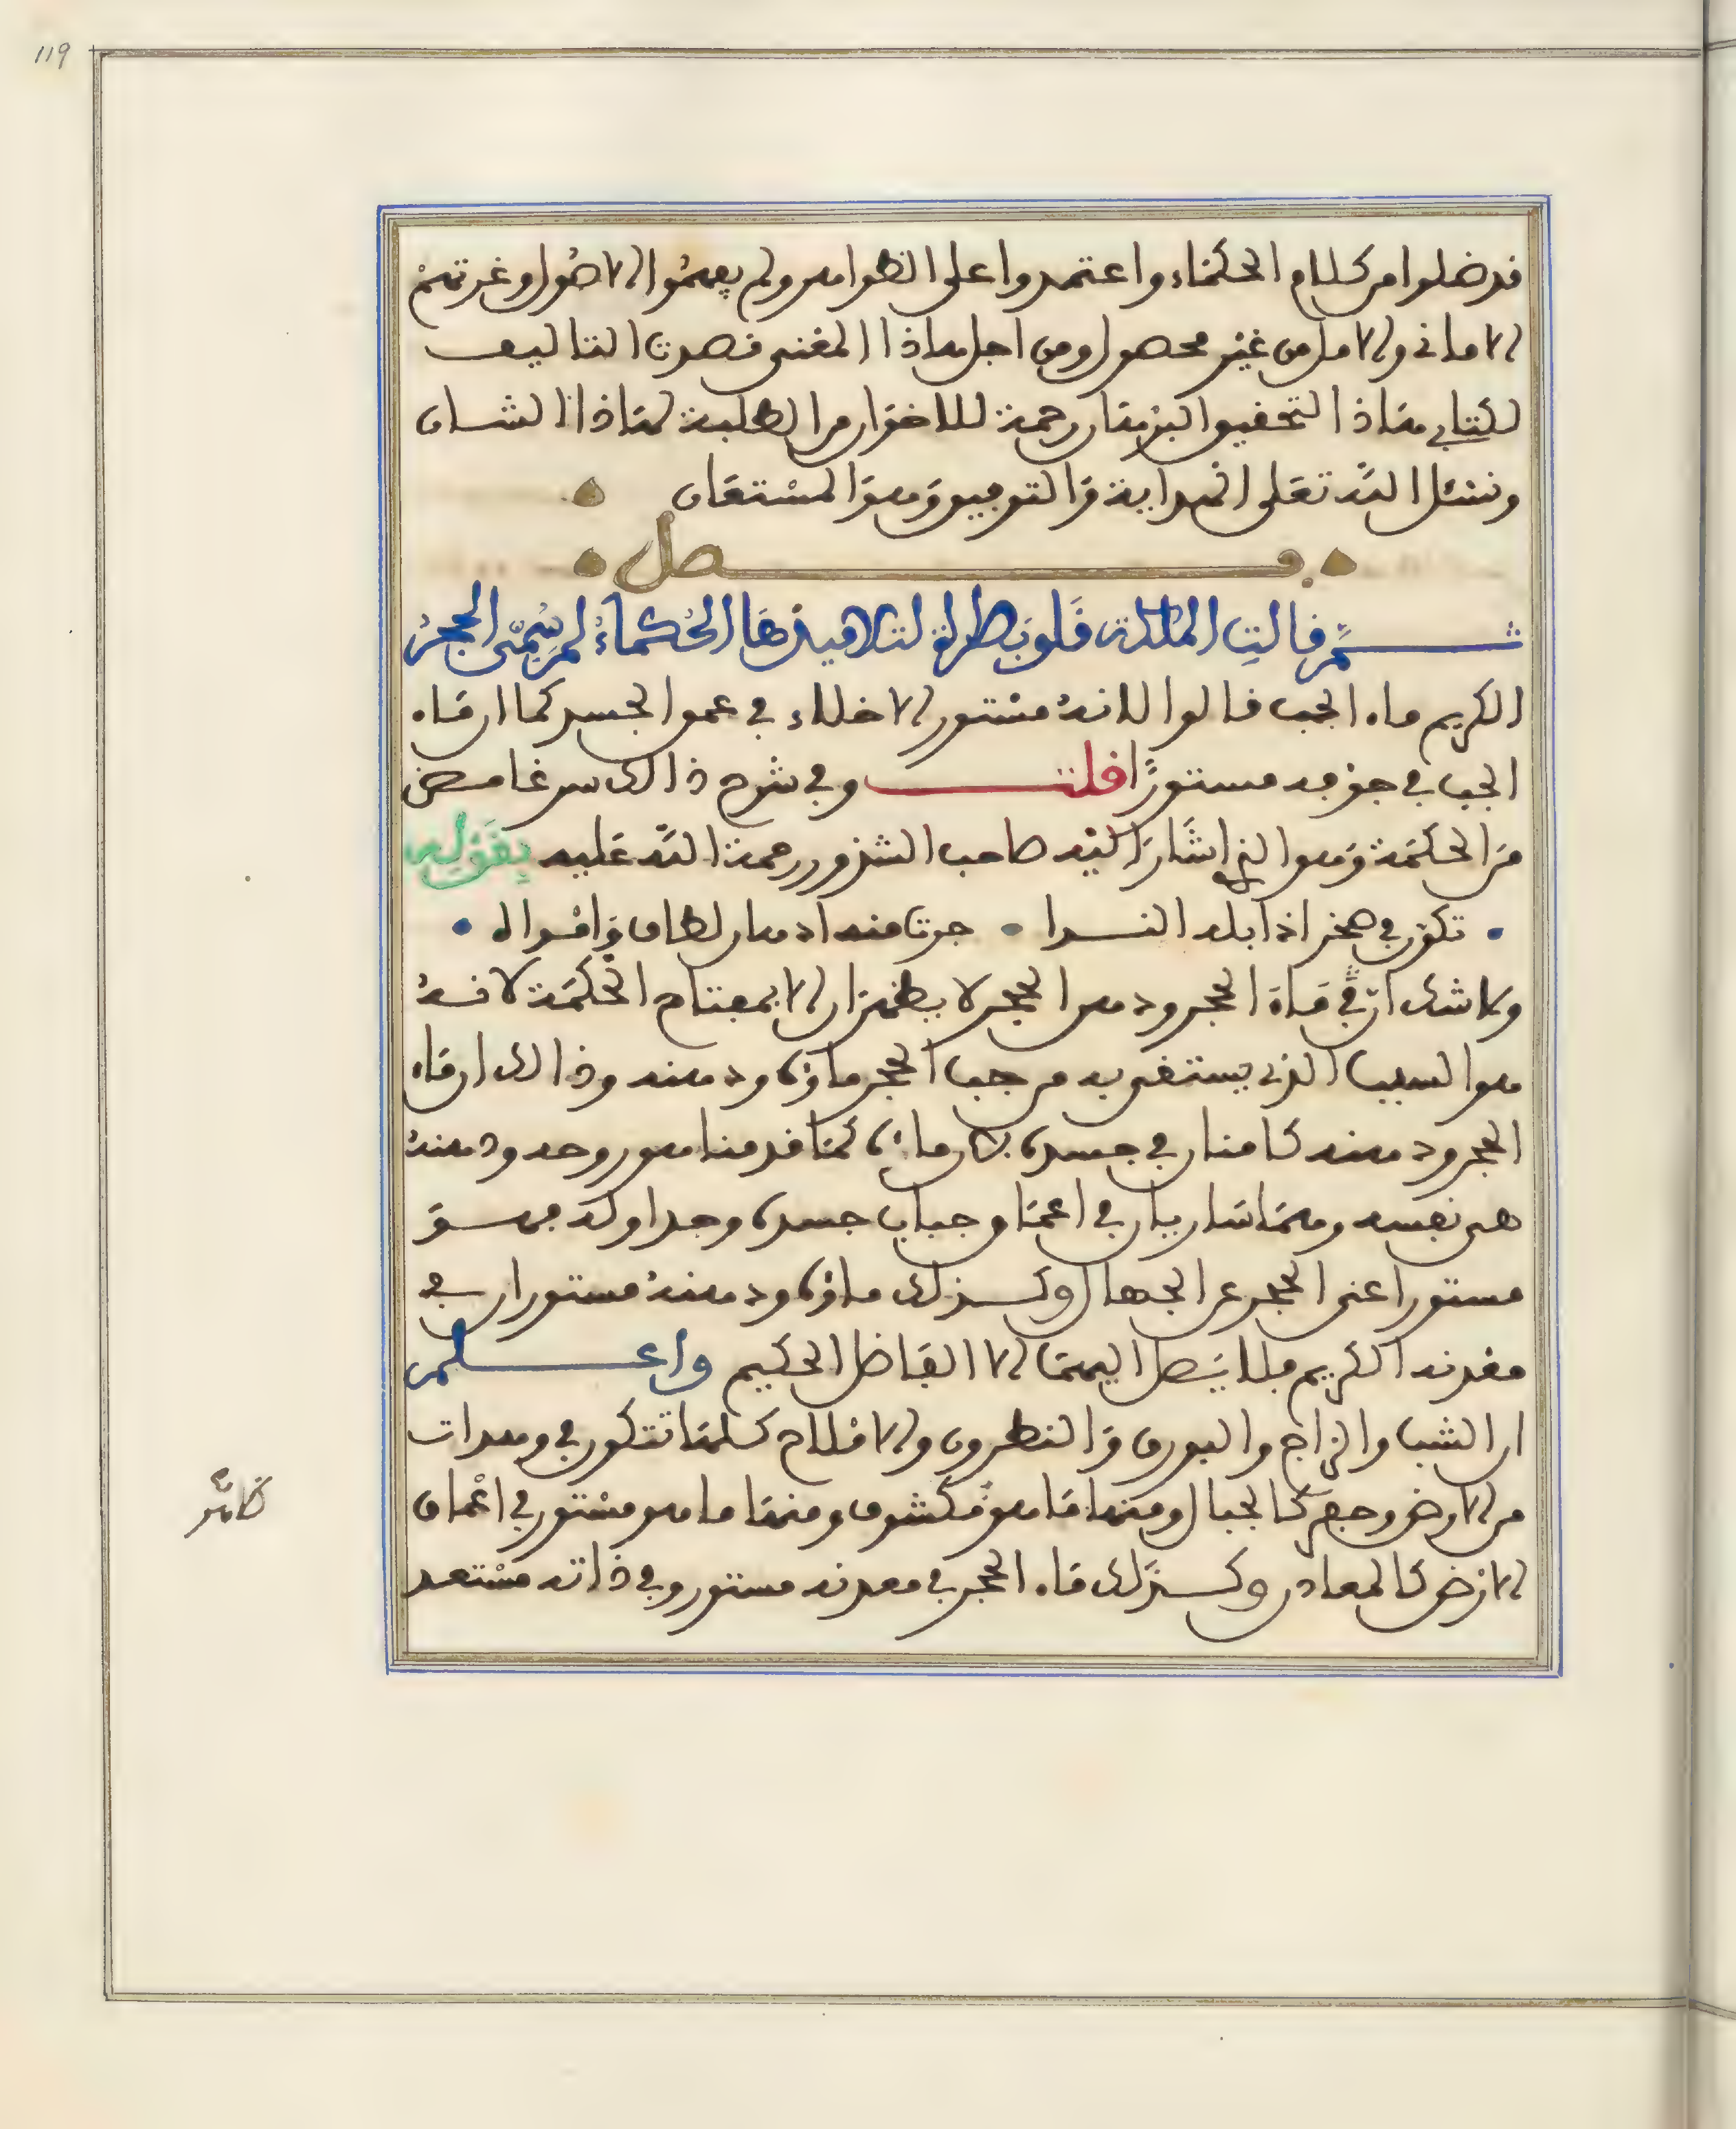 119
قد ضلوا من كلام الحكماء واعتمدوا على الظواهر ولم يفهموا الاصول وغرتهم
الاماني والامل من غير محصول ومن اجل هاذا المعنى قصدنا التاليف
لكتاب هاذا التحقيق البرهان رحمة للاخوان من الطلبة لهاذا الشان
ونسئل الله تعلى الهداية والتوفيق وهو المستعان
فصل
ثم قالت الملكة قلوبطراة لتلاميذها الحكماء لم سمى الحجر
الكريم ماء الجب قالوا لانه مستور الاخلاء في عمق الجسد كما ان ماء
الجب في جوفه مستورا قلت وفي شرح ذالك سر غامض
من الحكمة وهو الذي اشار اليه صاحب الشذور رحمة الله عليه بقوله
تكون في صخر اذا بله الندا جرت منه ادهان لطاف وامواه
ولا شك ان في ماء الحجر ودهن الحجر لا يظهران الا بمفتاح الحكمة لانه
هو السبب الذي يستقى به من جب الحجر ماؤه ودهنه وذالك ان ماء
الحجر ودهنه كامنان في جسده لان ماءه كما قدمنا هو روحه ودهنه
هى نفسه وهما ساريان في اعماق جباب جسده وجداوله فهو
مستور اعنى الحجر عن الجهال وكذلك ماؤه ودهنه مستوران في
معدنه الكريم فلا يصل اليهما الا الفاضل الحكيم واعلم
ان الشب والزاج والبورق والنطرون والاملاح كلها تتكون في وهدات
من الارض وجعر كالجبال ومنها ما هو مكشوف ومنها ما هو مستور في اعماق
الارض كالمعادن وكذلك ماء الحجر في معدنه مستور وفي ذاته مستعد